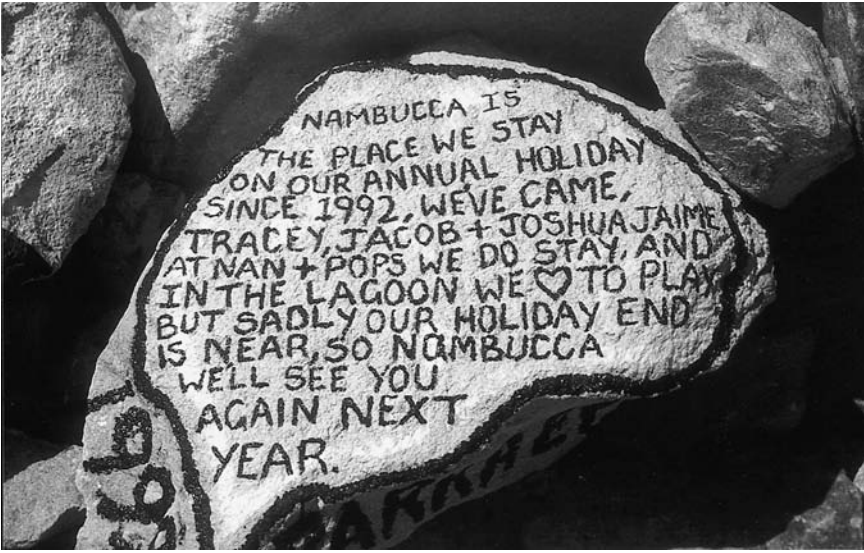 NAMBUCCA IS
THE PLACE WE STAY
ON OUR ANNUAL HOLIDAY
SINCE 1992, WE'VE CAME,
TRACEY, JACOB + JOSHUA JAIME
AT NAN + POPS WE DO STAY, AND
IN THE LAGOON WE ♡ TO PLAY
BUT SADLY OUR HOLIDAY END
IS NEAR, SO NAMBUCCA
WE'LL SEE YOU
AGAIN NEXT
YEAR.